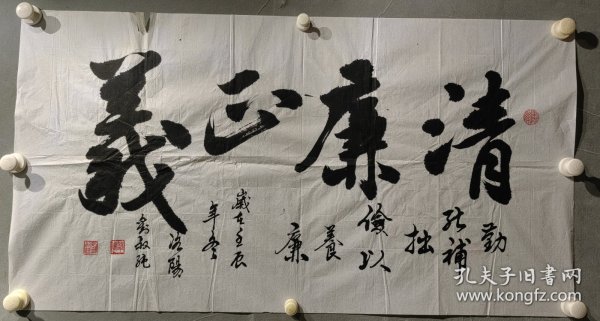 清廉正義
勤
能補
拙
儉以
養
廉
歲在壬辰
年冬
洛陽
孔夫子旧书网
www.kongfz.com